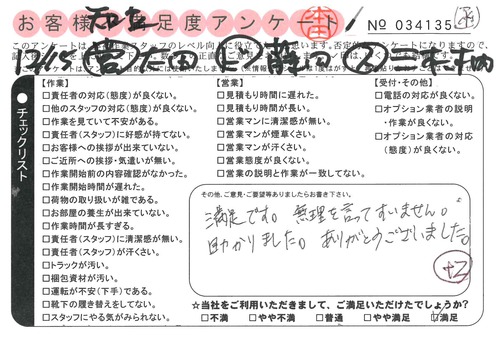 お客様 足度アンケート
No 034135
チェックリスト
【作業】
□責任者の対応(態度)が良くない。
□他のスタッフの対応(態度)が良くない。
□作業を見ていて不安がある。
□責任者(スタッフ)に好感が持てない。
□お客様への挨拶が出来ていない。
□ご近所への挨拶・気遣いが無い。
□作業開始前の内容確認がなかった。
□作業開始時間が遅れた。
□荷物の取り扱いが雑である。
□お部屋の養生が出来ていない。
□作業時間が長すぎる。
□責任者(スタッフ)に清潔感が無い。
□責任者(スタッフ)が汗くさい。
□トラックが汚い。
□梱包資材が汚い。
□運転が不安(下手)である。
□靴下の履き替えをしてない。
□スタッフにやる気がみられない。
【営業】
□見積もり時間に遅れた。
□見積もり時間が長い。
□営業マンに清潔感が無い。
□営業マンが煙草くさい。
□営業マンが汗くさい。
□営業態度が良くない。
□営業の説明と作業が一致してない。
【受付・その他】
□電話の対応が良くない。
□オプション業者の説明
・作業が良くない。
□オプション業者の対応
(態度)が良くない。
その他、ご意見・ご要望等ありましたらお書き下さい。
満足です。無理を言ってすいません。
助かりました。ありがとうございました。
+2
☆当社をご利用いただきまして、ご満足いただけたでしょうか?
□不満 □やや不満 □普通 □やや満足 ☑満足